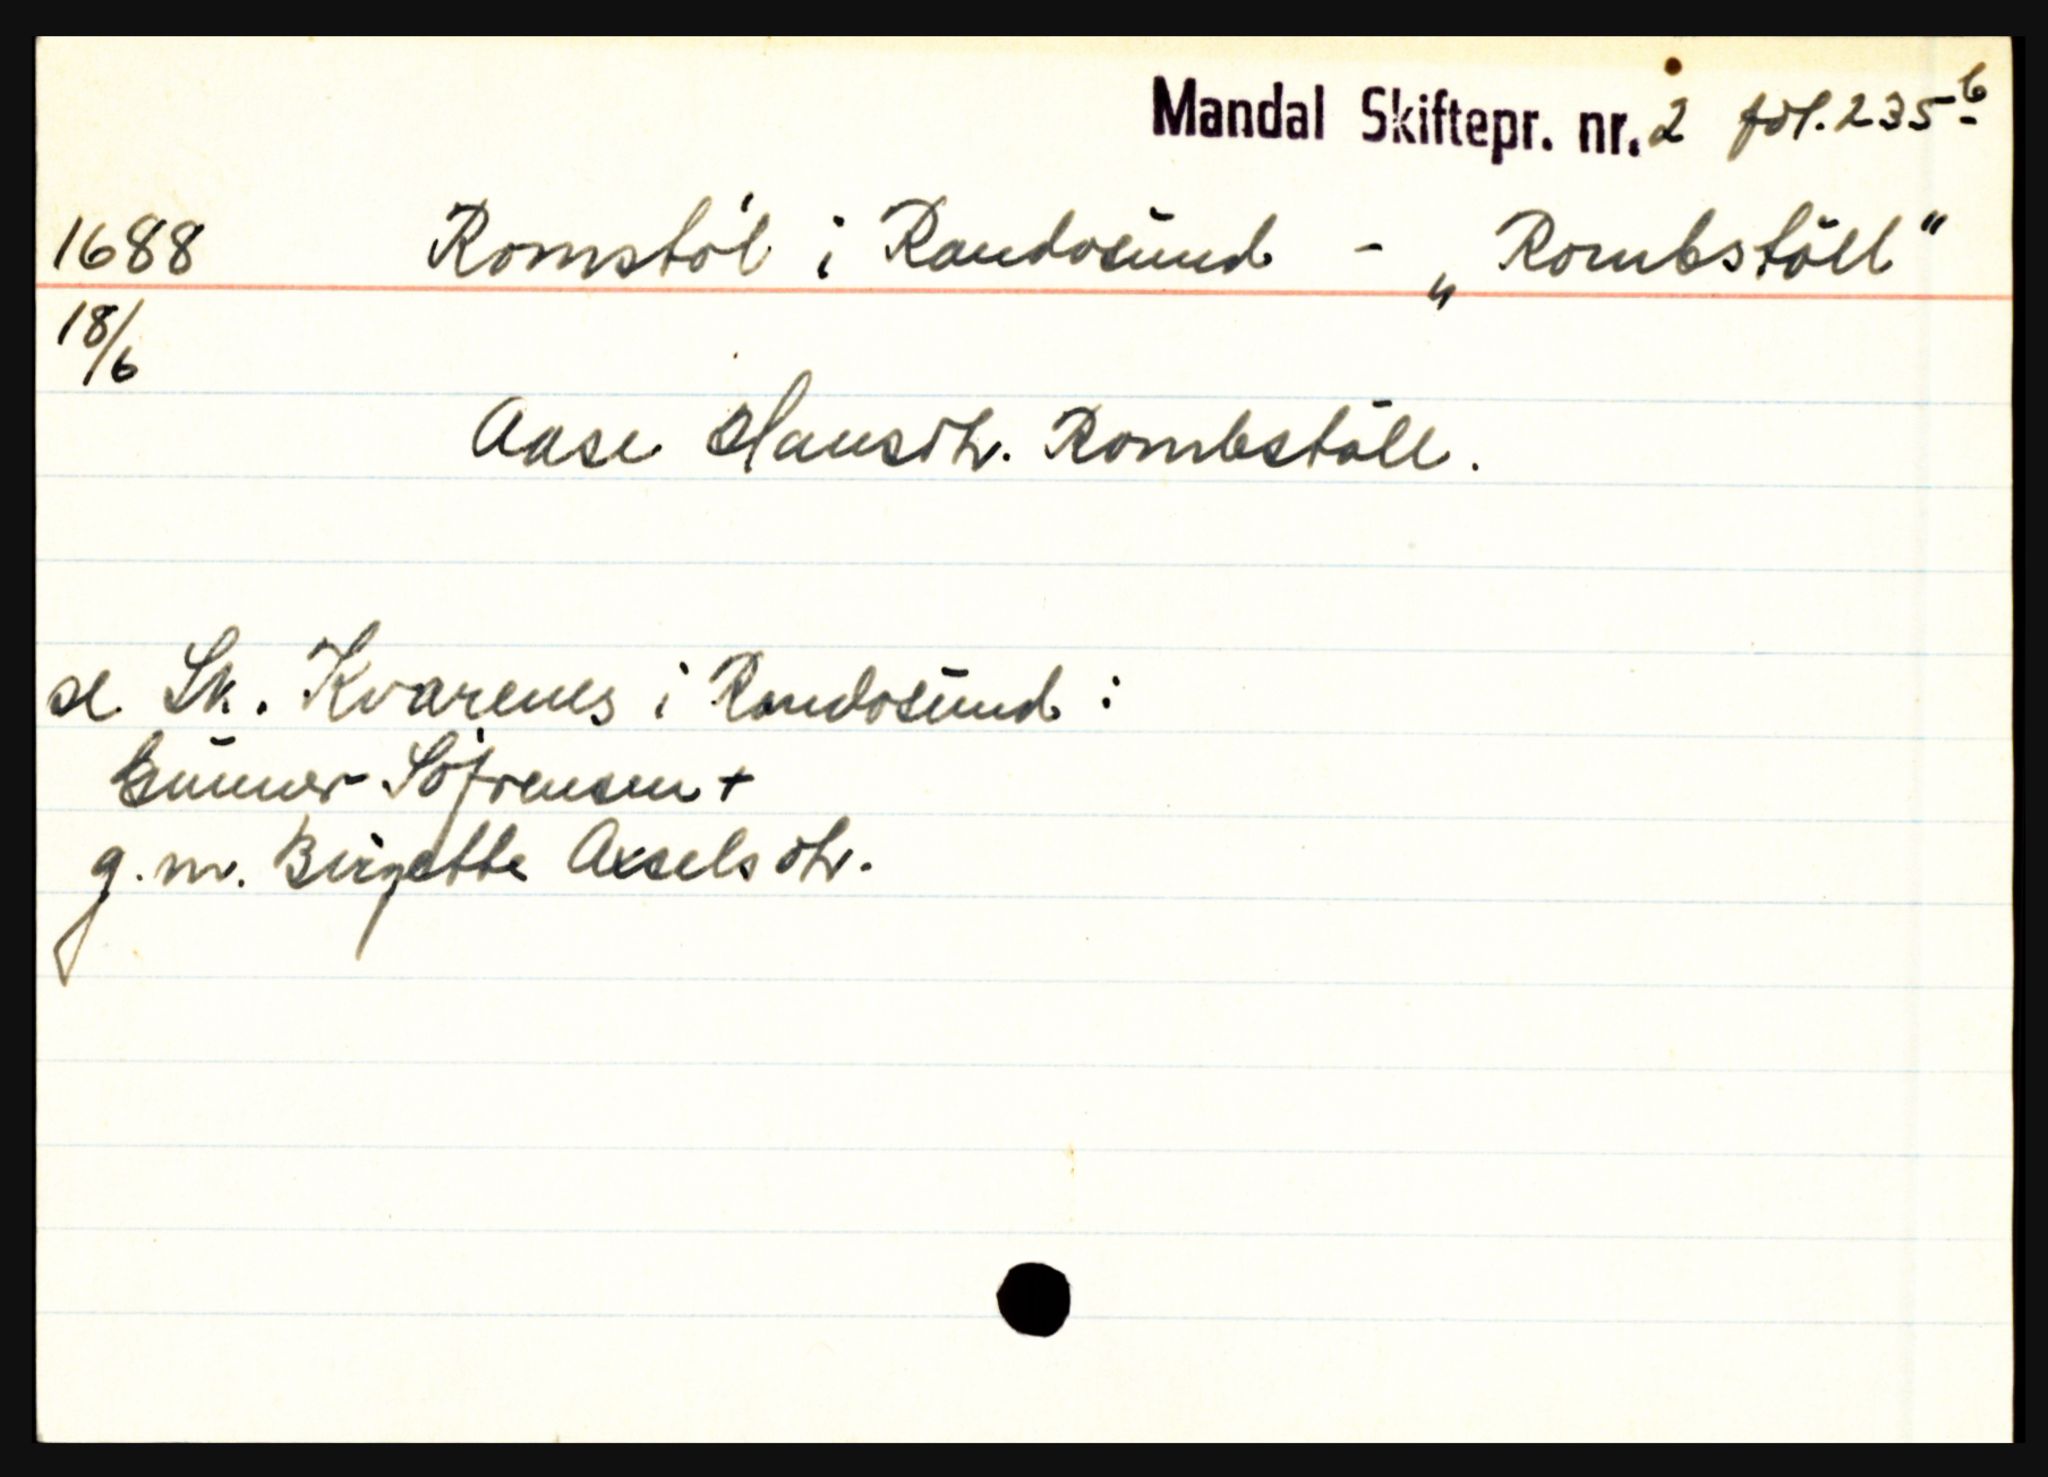 Mandal Skiftepr. nr. 2 fol. 235 b
1688 Romstöl i Randosund - „Rombstöll"
18/6
Aase Hansdtr. Rombstöll.
se Sk. Kvarenes i Randosund:
Gunner Söfrensen +
g. m. Birgette Axelsdtr.